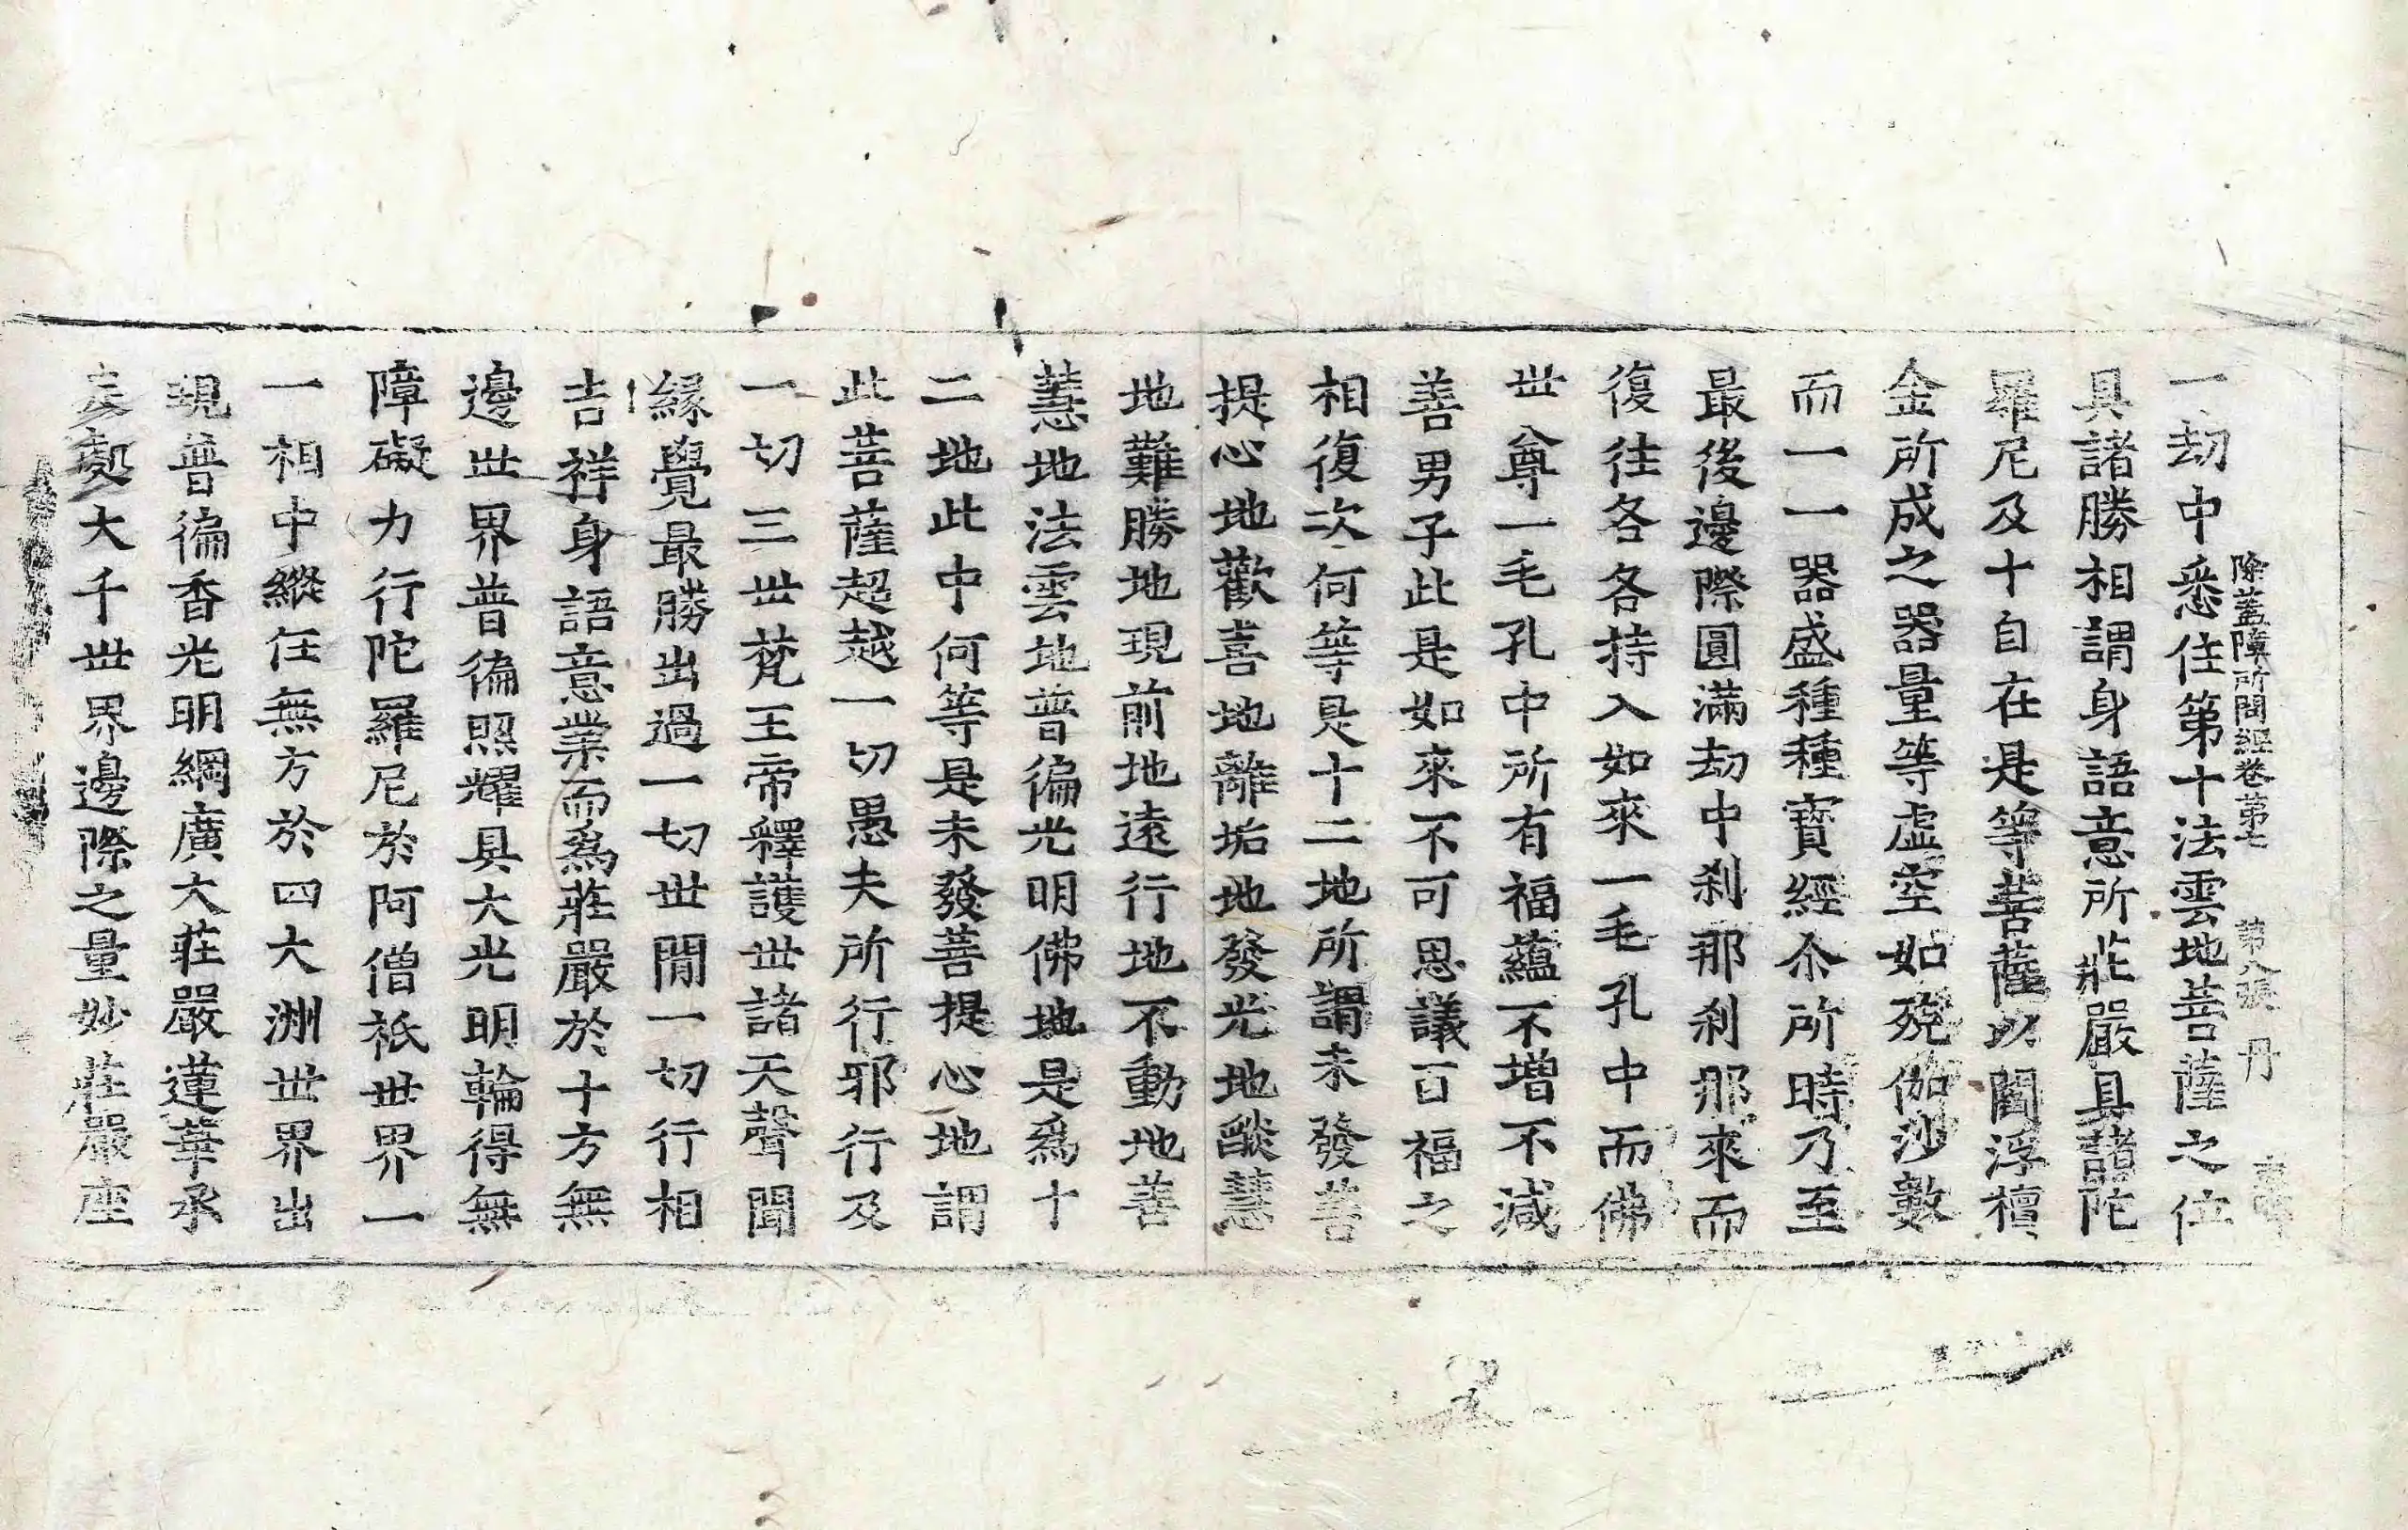 除蓋障所問經卷苐七 第八張 丹
一劫中悉住第十法雲地菩薩之位
具諸勝相謂身語意所莊嚴具諸陀
羅尼及十自在是等菩薩以閻浮檀
金所成之器量等虛空如殑伽沙數
而一一器盛種種寶經尒所時乃至
最後邊際圓滿劫中刹那刹那來而
復往各各持入如來一毛孔中而佛
世尊一毛孔中所有福蘊不增不減
善男子此是如來不可思議百福之
相復次何等是十二地所謂未發菩
提心地歡喜地離垢地發光地燄慧
地難勝地現前地遠行地不動地善
慧地法雲地普徧光明佛地是爲十
二地此中何等是未發菩提心地謂
此菩薩超越一切愚夫所行邪行及
一切三世梵王帝釋護世諸天聲聞
緣覺最勝出過一切世閒一切行相
吉祥身語意業而爲莊嚴於十方無
邊世界普徧照耀具大光明輪得無
障礙力行陀羅尼於阿僧祇世界一
一相中縱任無方於四大洲世界出
現普徧香光明網廣大莊嚴蓮華承
大千世界邊際之量妙莊嚴座